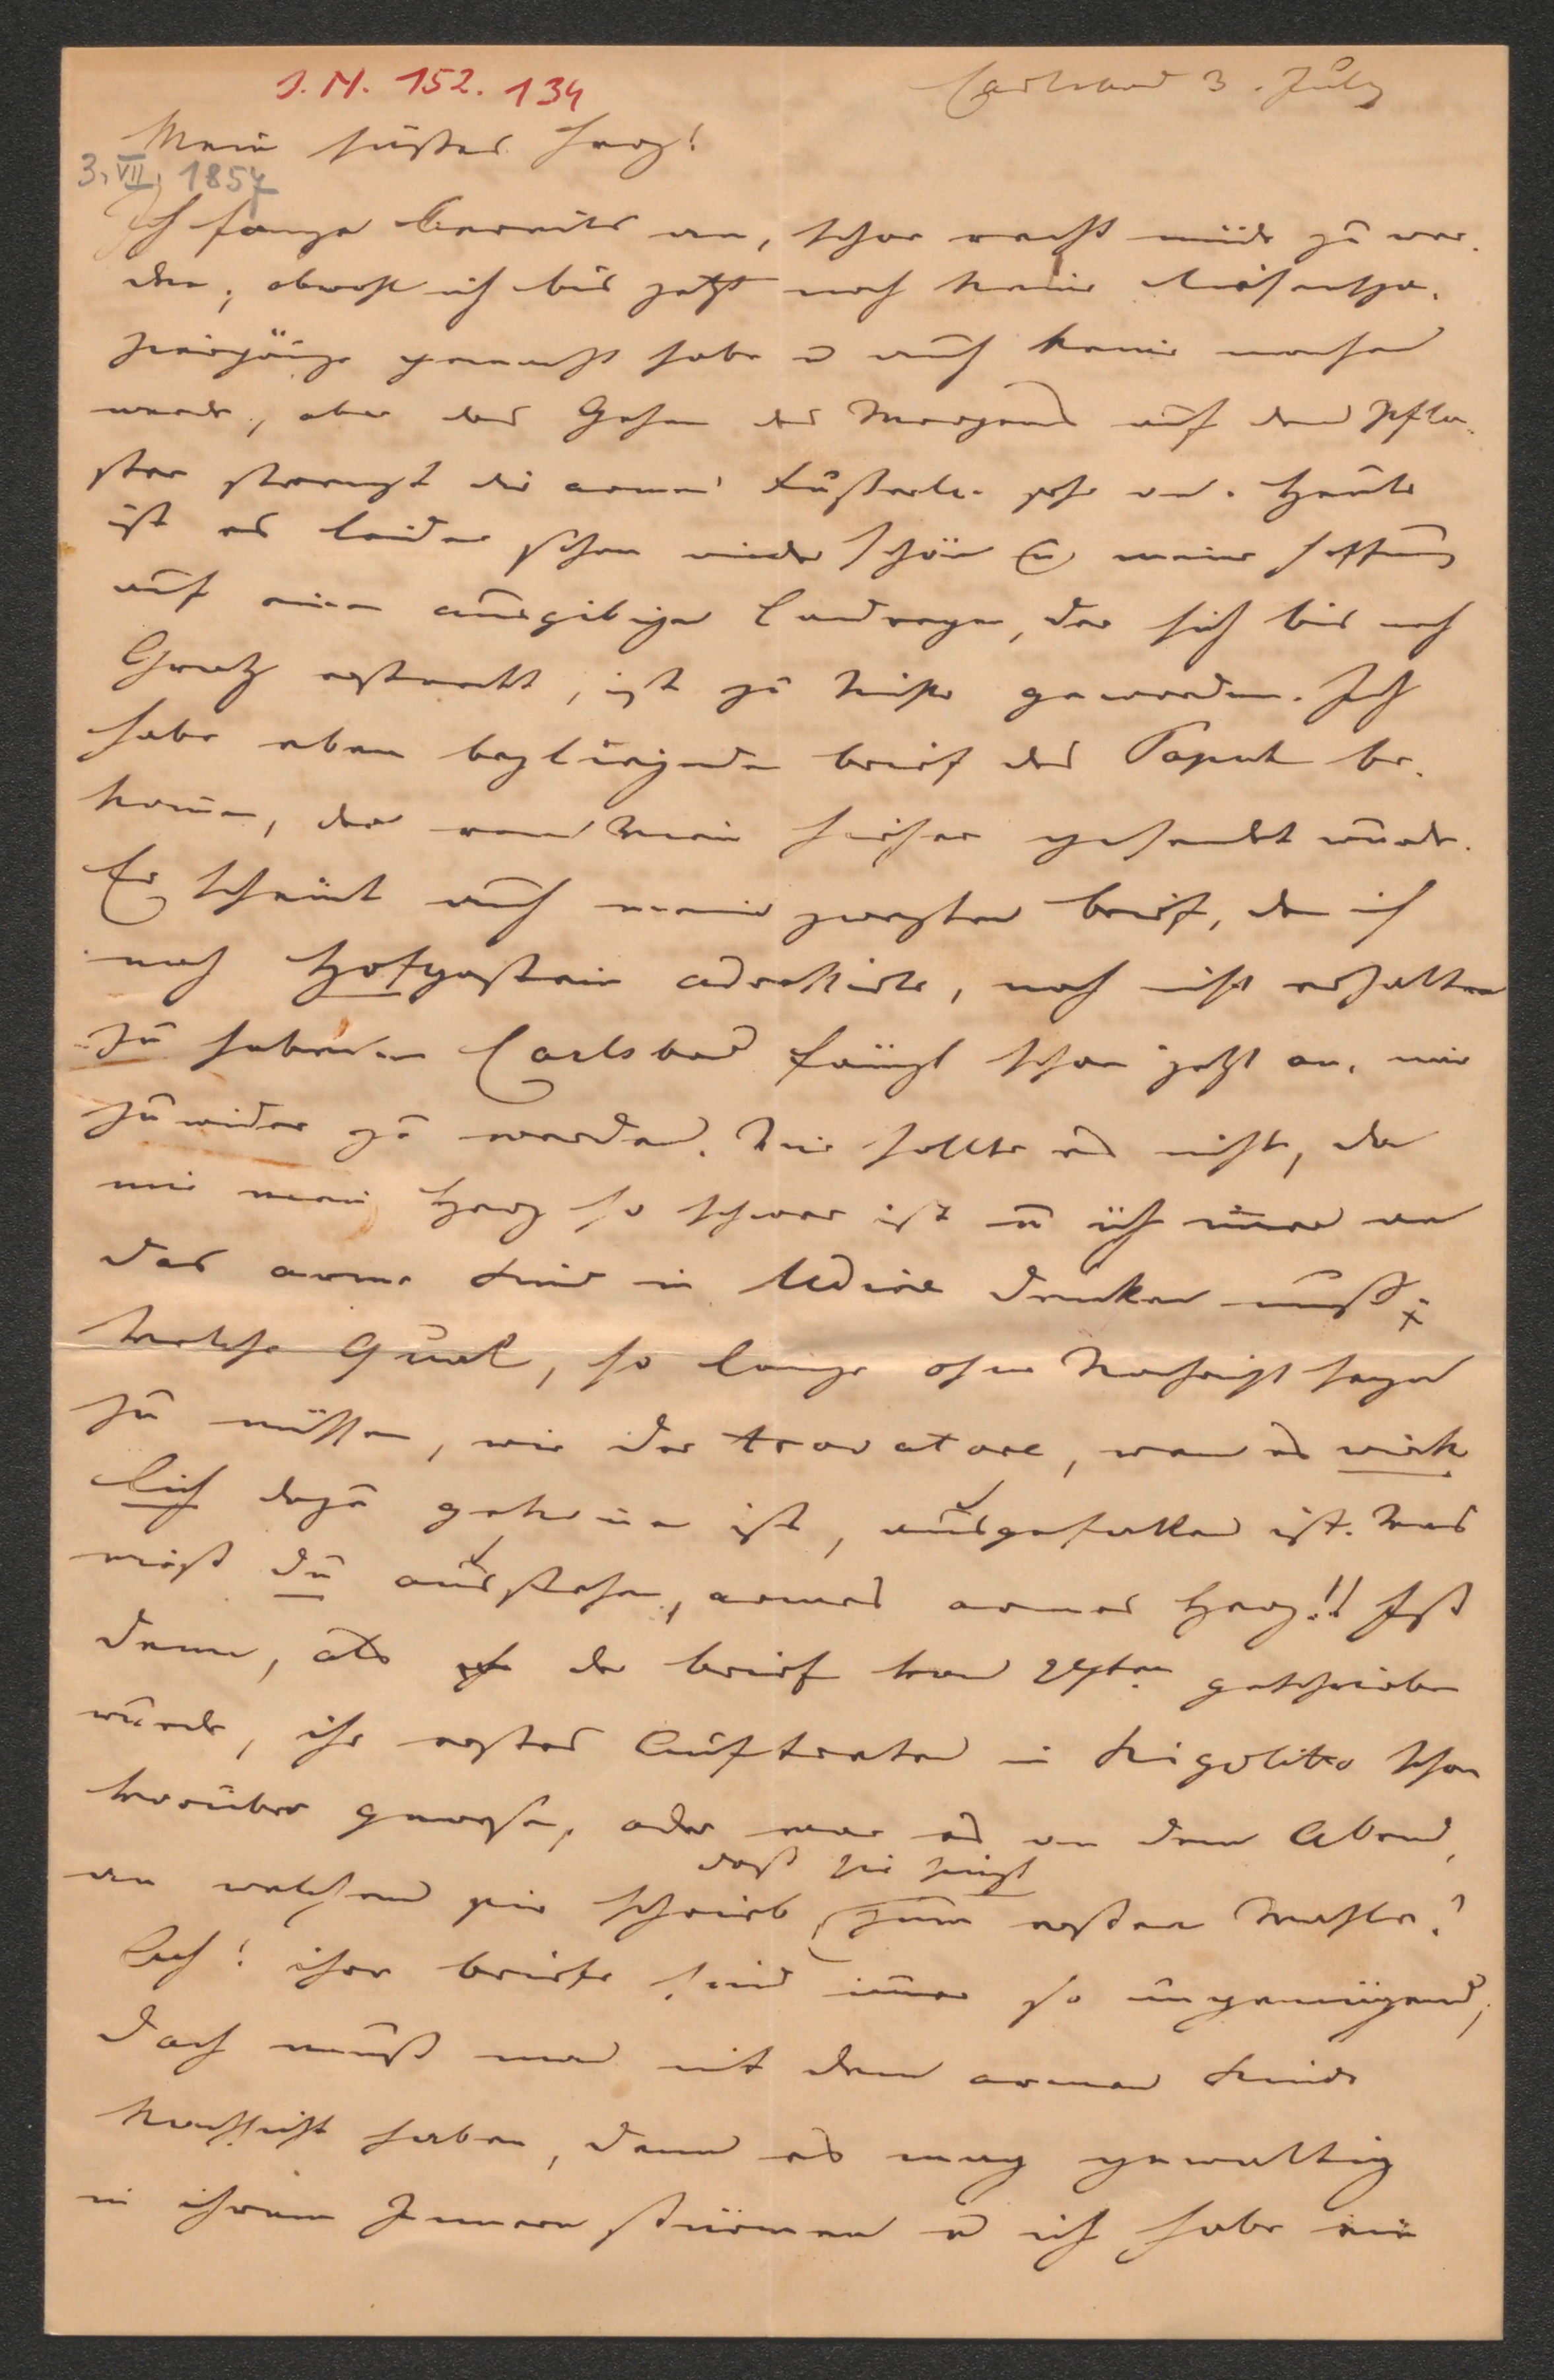 I. N. 152. 134
Carlsbad 3. July
Mein süßes Herz!
3. VII. 1857
Ich fange bereits an, schon recht müde zu wer-
den, obwohl ich bis jetzt noch keine Riesenspa-
ziergänge gemacht habe u auch keine machen
werde, aber das Gehen des Morgens auf dem Pfla-
ster strengt die armen Füßerln sehr an. Heute
ist es leider schon wieder schön u meine Hoffnung
auf einen ausgibigen Landregen, der sich bis nach
Gratz erstreckt, ist zu nichte geworden. Ich
habe eben beyliegenden Brief des be-
komen, der von Wien hieher gesendet wurde.
Er scheint auch meinen zweyten Brief, den ich
nach Hofgastein adressirte, noch nicht erhalten
zu haben. Carlsbad fängt schon jetzt an, mir
zuwider zu werden. Wie sollte es nicht, da
mir mein Herz so schwer ist u ich imer an
das arme Kind in Udine denken muß;
Welche Qual, so lange ohne Nachricht seyn
zu müssen, wie der trovatore, wenn es wirk
lich dazu gekomen ist, ausgefallen ist. Was
mußt du ausstehen, armes armes Herz!! Ist
denn, als der Brief vom 29ten geschrieben
wurde, ihr erstes Auftreten in Rigoletto schon
vorüber gewesen, oder war es an dem Abend,
daß sie singt
an welchem sie schrieb zum ersten Mahle?
Ach! ihre Briefe sind imer so ungenügend;
doch muß man mit dem armen Kinde
Nachsicht haben, denn es mag gewaltig
in ihrem Innern stürmen u ich habe nie